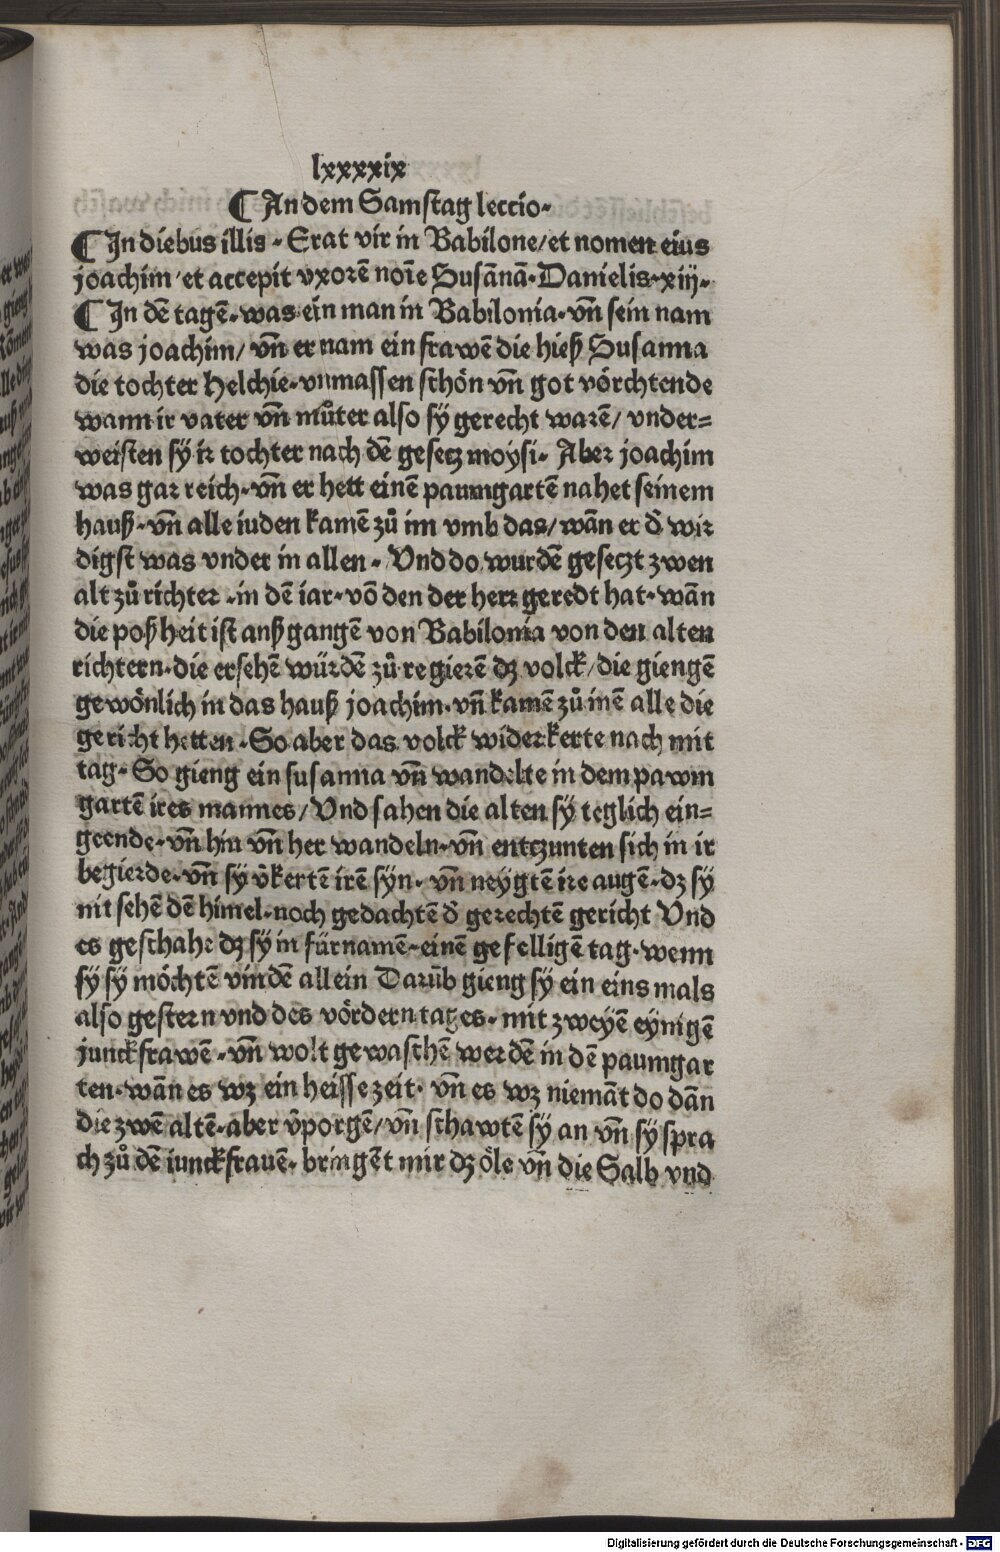 lxxxxix
¶ An dem Samstag leccio.
¶ In diebus illis. Erat vir in Babilone/et nomen eius
joachim/et accepit vxorē noīe Susānā. Danielis.xiij.
¶ In dē tagē.was ein man in Babilonia.vn̄ sein nam
was joachim/ vn̄ er nam ein frawē die hieß Susanna
die tochter Helchie.vnmassen schön vn̄ got vörchtende
wann ir vater vn̄ můter also sÿ gerecht warē/ vnder=
weisten sÿ ir tochter nach dē gesetz moysi. Aber joachim
was gar reich.vn̄ er hett einē paumgartē nahet seinem
hauß.vn̄ alle iuden kamē zů im vmb das/wān er d̄ wir
digst was vnder in allen. Vnd do wurdē gesetzt zwen
alt zů richter.in dē iar.vō den der herr geredt hat.wān
die poßheit ist auß gangē von Babilonia von den alten
richtern.die ersehē würdē zů regierē dz volck/die giengē
gewönlich in das hauß joachim.vn̄ kamē zů inē alle die
gericht hetten.So aber das volck widerkerte nach mit
tag. So gieng ein susanna vn̄ wandelte in dem pawm
gartē ires mannes/Vnd sahen die alten sÿ teglich ein=
geende.vn̄ hin vn̄ her wandeln.vn̄ entczunten sich in ir
begierde.vn̄ sÿ v̄kertē irē syn. vn̄ neygtē ire augē.dz sÿ
nit sehē dē himel.noch gedachtē d̄ gerechtē gericht Vnd
es geschahe dz sÿ in fürnamē.einē gefelligē tag.wenn
sÿ sÿ möchtē vindē allein Darūb gieng sÿ ein eins mals
also gestern vnd des vördern tages.mit zweyē eynigē
junckfrawē.vn̄ wolt gewaschē werdē in dē paumgar
ten.wān es wz ein heisse zeit. vn̄ es wz niemāt do dān
die zwē altē.aber v̄porgē/vn̄ schawtē sÿ an vn̄ sÿ spra
ch zů dē iunckfrauē.bringēt mir dz öle vn̄ die Salb vnd
Digitalisierung gefördert durch die Deutsche Forschungsgemeinschaft - DFG